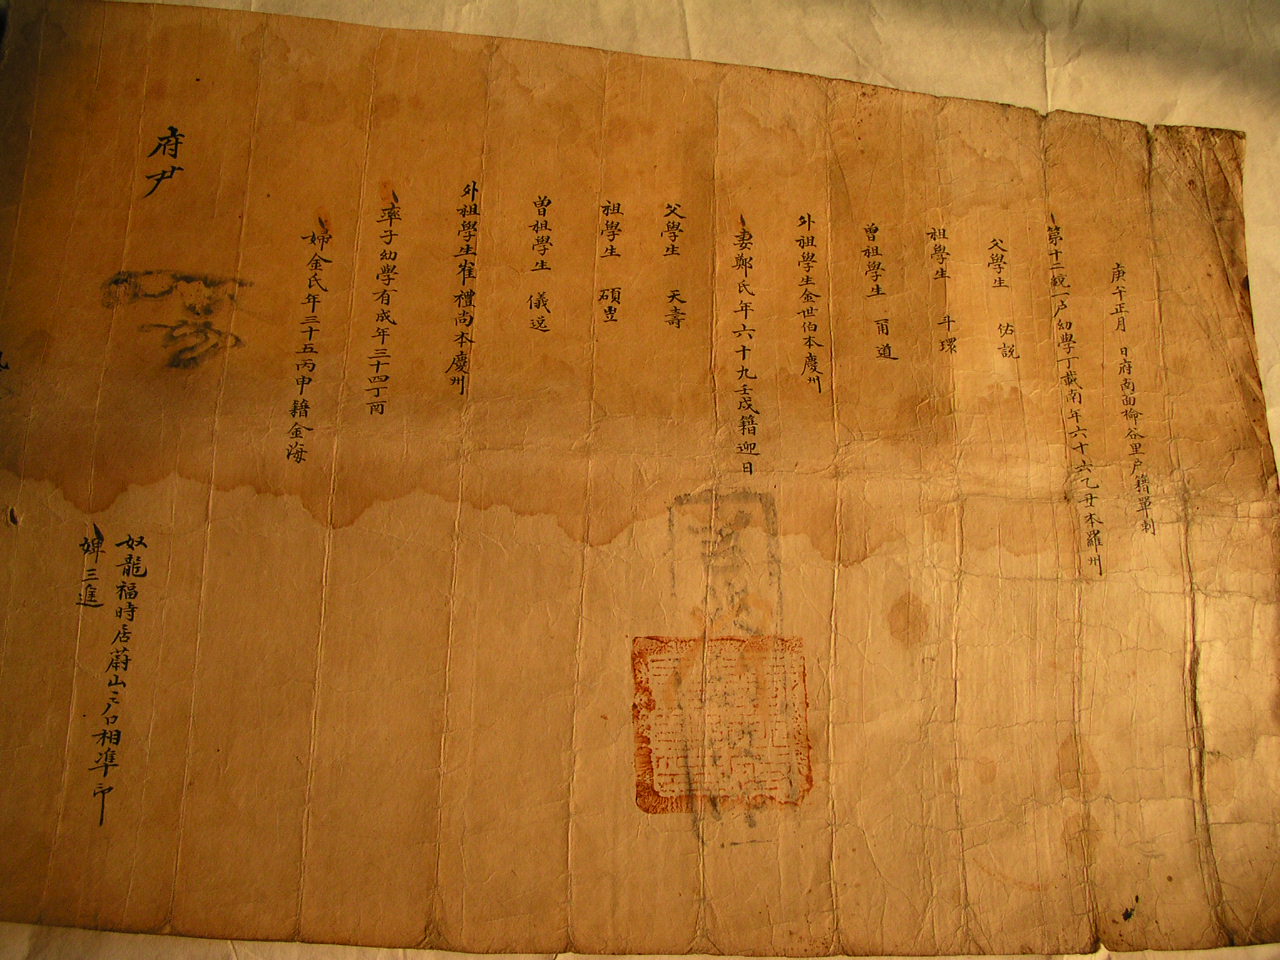 庚午正月 日府南面 谷里戶籍單刺
第十二統一戶幼學丁載南年六十六乙丑本羅州
父學生 佑說
祖學生 斗環
曾祖學生 爾道
外祖學生金世伯本慶州
妻鄭氏年六十九壬戌籍迎日
父學生 天壽
祖學生 碩豊
曾祖學生 儀遠
外祖學生崔禮尚本慶州
率子幼學有成年三十四丁酉
婦金氏年三十五丙申籍金海
府尹
奴龍福時居蔚山
戶口相準印
婢三進